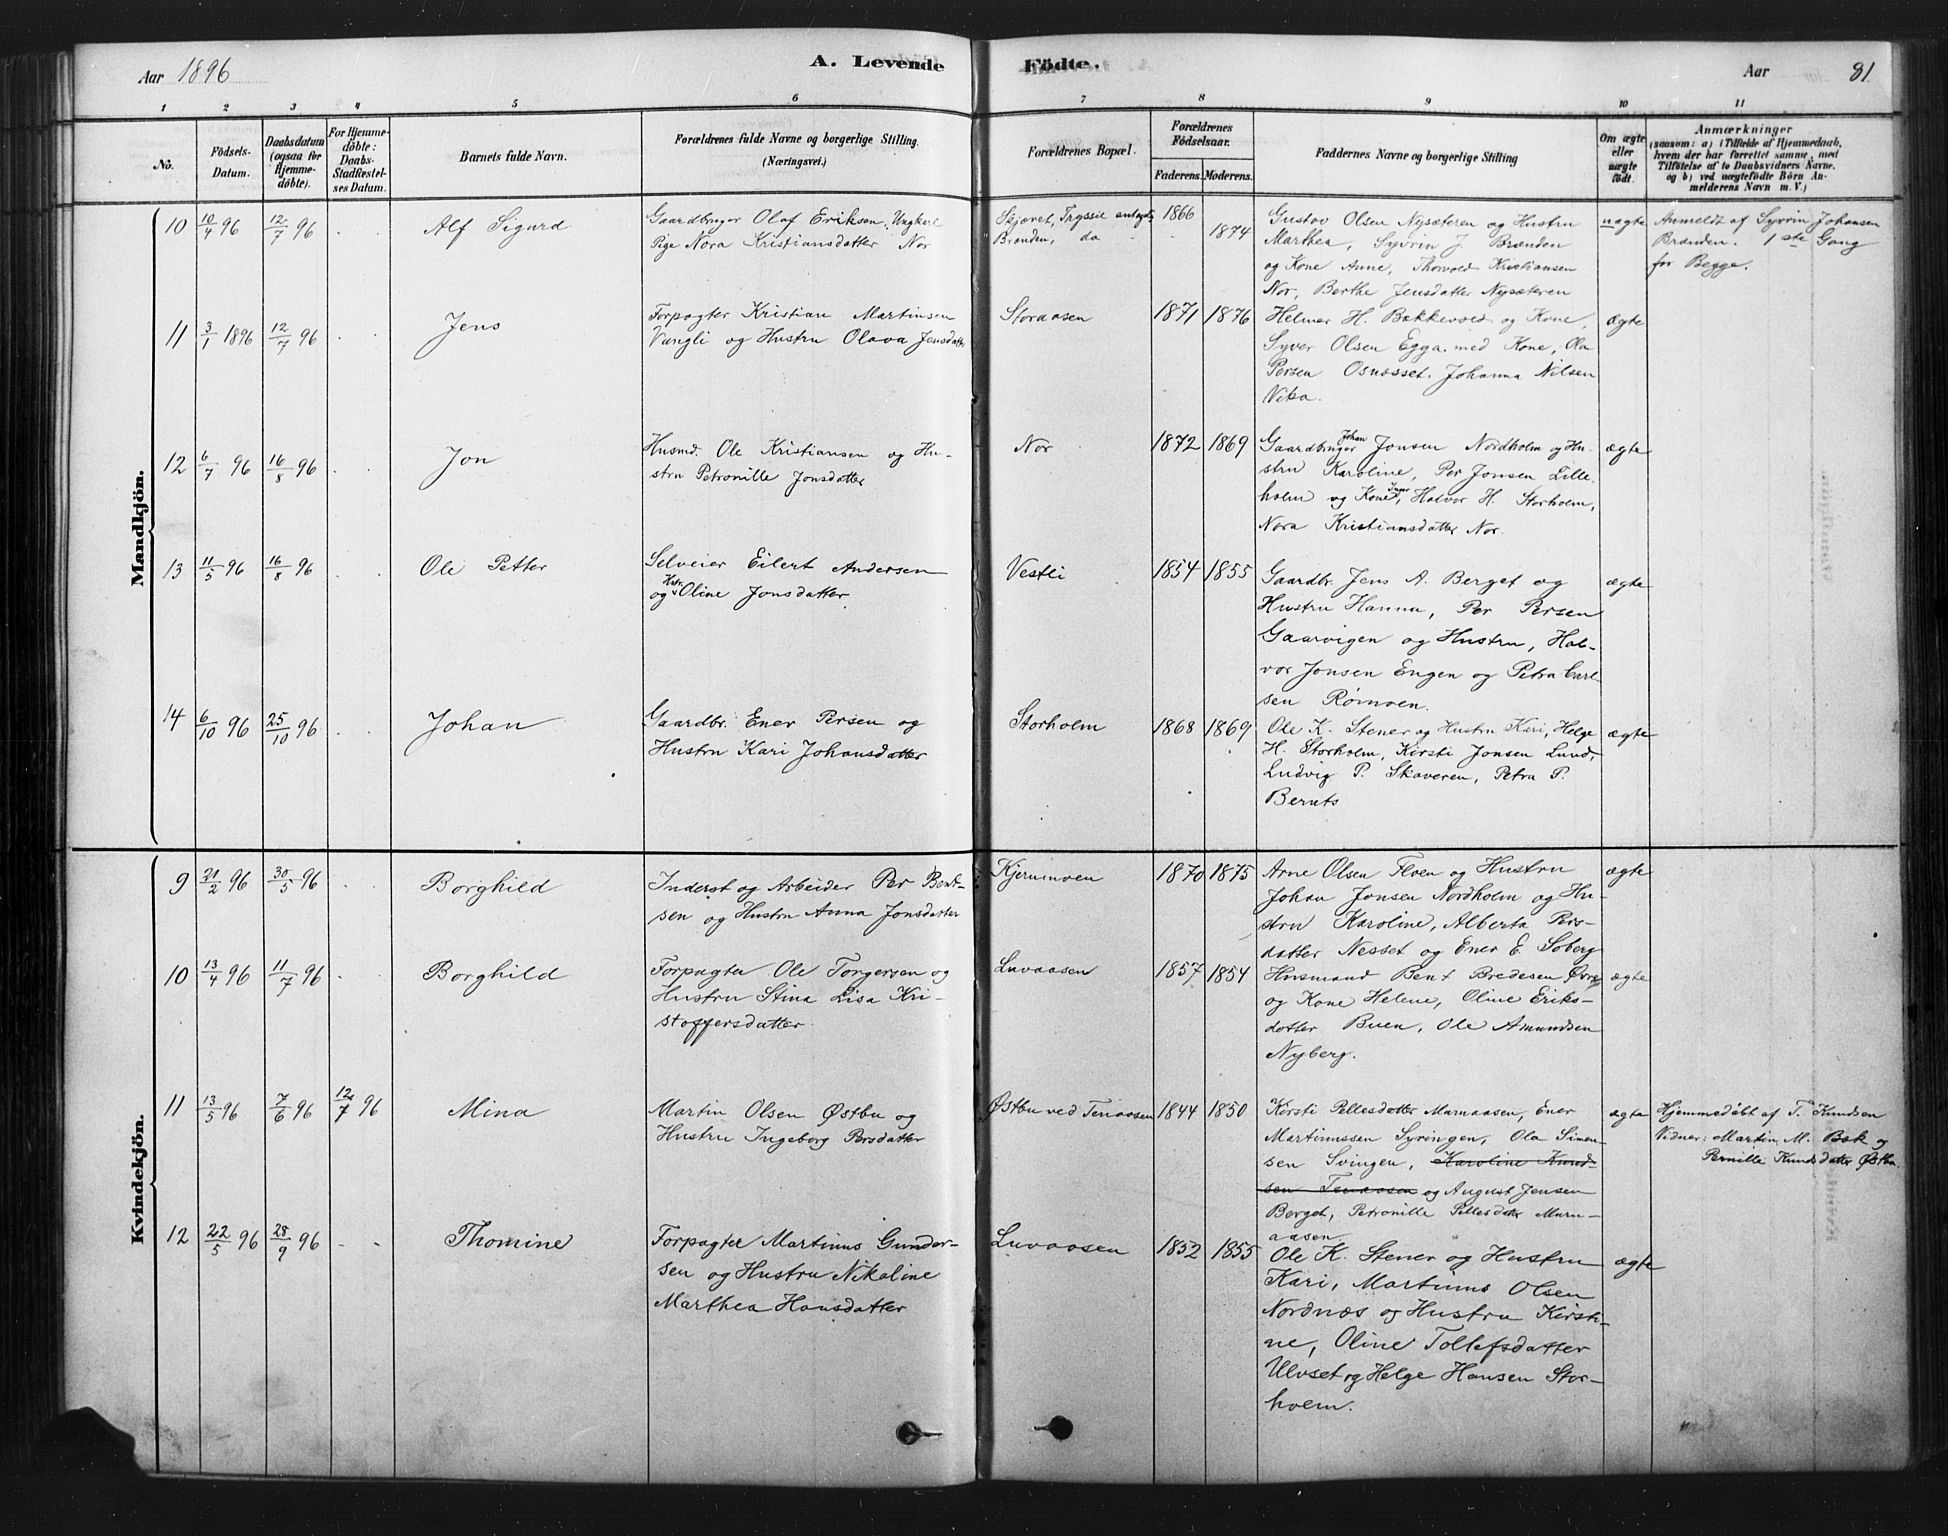 Aar 1896 A. Levende Födte. Aar 81
1 2 3 4 5 6 7 8 9 10 11
No.
Födsels-Datum.
Daabsdatum (ogsaa för Hjemme-döbte).
For Hjemme-döbte: Daabs-Stadfæstel-ses Datum.
Barnets fulde Navn.
Forældrenes fulde Navne og borgerlige Stilling.
(Næringsvei.)
Forældrenes Bopæl.
Forældrenes Födselsaar.
Faderens. Moderens.
Faddernes Navne og borgerlige Stilling
Om ægte eller uægte födt.
Anmærkninger
(saasom: a) i Tilfælde af Hjemmedaab,
hvem der har forrettet samme, med
Tilföielse af to Daabsvidners Navne,
og b) ved uægtefödte Börn An-
melderens Navn m. V.)
Mandkjön.
10 10/4 96 12/7 96 Alf Sigurd
Gaardbruger Olaf Eriksen, Ungkarl
Pige Nora Kristiansdatter Nor
Skjæret, Trysil
Brænden, do
1866 1874
Gustav Olsen Nysæteren og Hustru
Marthea, Syvrin J. Brænden
og Kone Anne, Thorvold Kristiansen
Nor, Berthe Jensdatter Nysæteren
uægte
Anmeldt af Syvrin Johansen
Brænden. 1ste Gang
for Begge.
11 3/1 1896 12/7 96 . . Jens
Forpagter Kristian Martinsen
Vangli og Hustru Olava Jensdatter
Storaasen
1871 1876
Helmer H. Bakkevold og Kone,
Syver Olsen Egga med Kone, Ola
Persen Osnesset, Johanna Nilsen
Vika.
ægte
12 6/7 96 16/8 96 . . Jon
Husmd. Ole Kristiansen og Hu-
stru Petronille Jonsdatter
Nor
1872 1869
Gaardbruger Johan Jonsen Nordholm og Hu-
stru Karoline, Per Jonsen Lille-
holm og Kone, Halvor H. Storholm,
Nora Kristiansdatter Nor.
ægte
13 11/5 96 16/8 96 . . Ole Petter
Selveier Eilert Andersen
og Hstr. Oline Jonsdatter
Vestli
1854 1855
Gaardbr. Jens A. Berget og
Hustru Hanna, Per Persen
Gaarvigen og Hustru, Hal-
vor Jonsen Engen og Petra Carl-
sen Rømoen.
ægte
14 6/10 96 25/10 96 . . Johan
Gaardbr. Ener Persen og
Hustru Kari Johansdatter
Storholm
1868 1869
Ole K. Stener og Hustru Kari, Helge
H. Storholm, Kirsti Jonsen Lund,
Ludvig P. Skaveren, Petra P.
Bernts
ægte
Kvindekjön.
9 21/2 96 30/5 96 . . Borghild
Inderst og Arbeider Per Bent-
sen og Hustru Anna Jonsdatter
Kjernmoen
1870 1875
Arne Olsen Floen og Hustru
Johan Jonsen Nordholm og Hu-
stru Karoline, Alberta Pers-
datter Nesset og Ener E. Soberg
ægte
10 13/4 96 11/7 96 . . Borghild
Forpagter Ole Torgersen og
Hustru Stina Lisa Kri-
stoffersdatter
Luvaasen
1857 1854
Husmand Bent Bredesen Øvre
og Kone Helene, Oline Eriks-
datter Buen, Ole Amundsen
Nyberg.
ægte
11 13/5 96 7/6 96 12/7 96 Mina
Martin Olsen Østbu og
Hustru Ingeborg Persdatter
Østbu ved Tenaasen
1844 1850
Kersti Pellesdatter Marnaasen, Ener
Martinussen Syringen, Ola Simen-
sen Svingen, Karoline Knud-
sen Tenaasen og August Jensen
Berget, Petronille Pellesdatter Marn-
aasen
ægte
Hjemmedøbt af T. Knudsen
Vidner: Martin M. Bak og
Pernille Knudsdatter Østbu.
12 22/5 96 28/9 96 - . Thomine
Forpagter Martinus Gunder-
sen og Hustru Nikoline
Marthea Hansdatter
Luvaasen
1852 1855
Ole K. Stener og Hustru
Kari, Martinus Olsen
Nordnæs og Hustru Kirsti-
ne, Oline Tollefsdatter
Ulvset og Helge Hansen Stor-
holm.
ægte